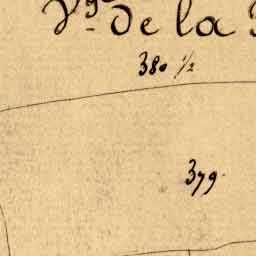 Vge de la
380 1/2
379.